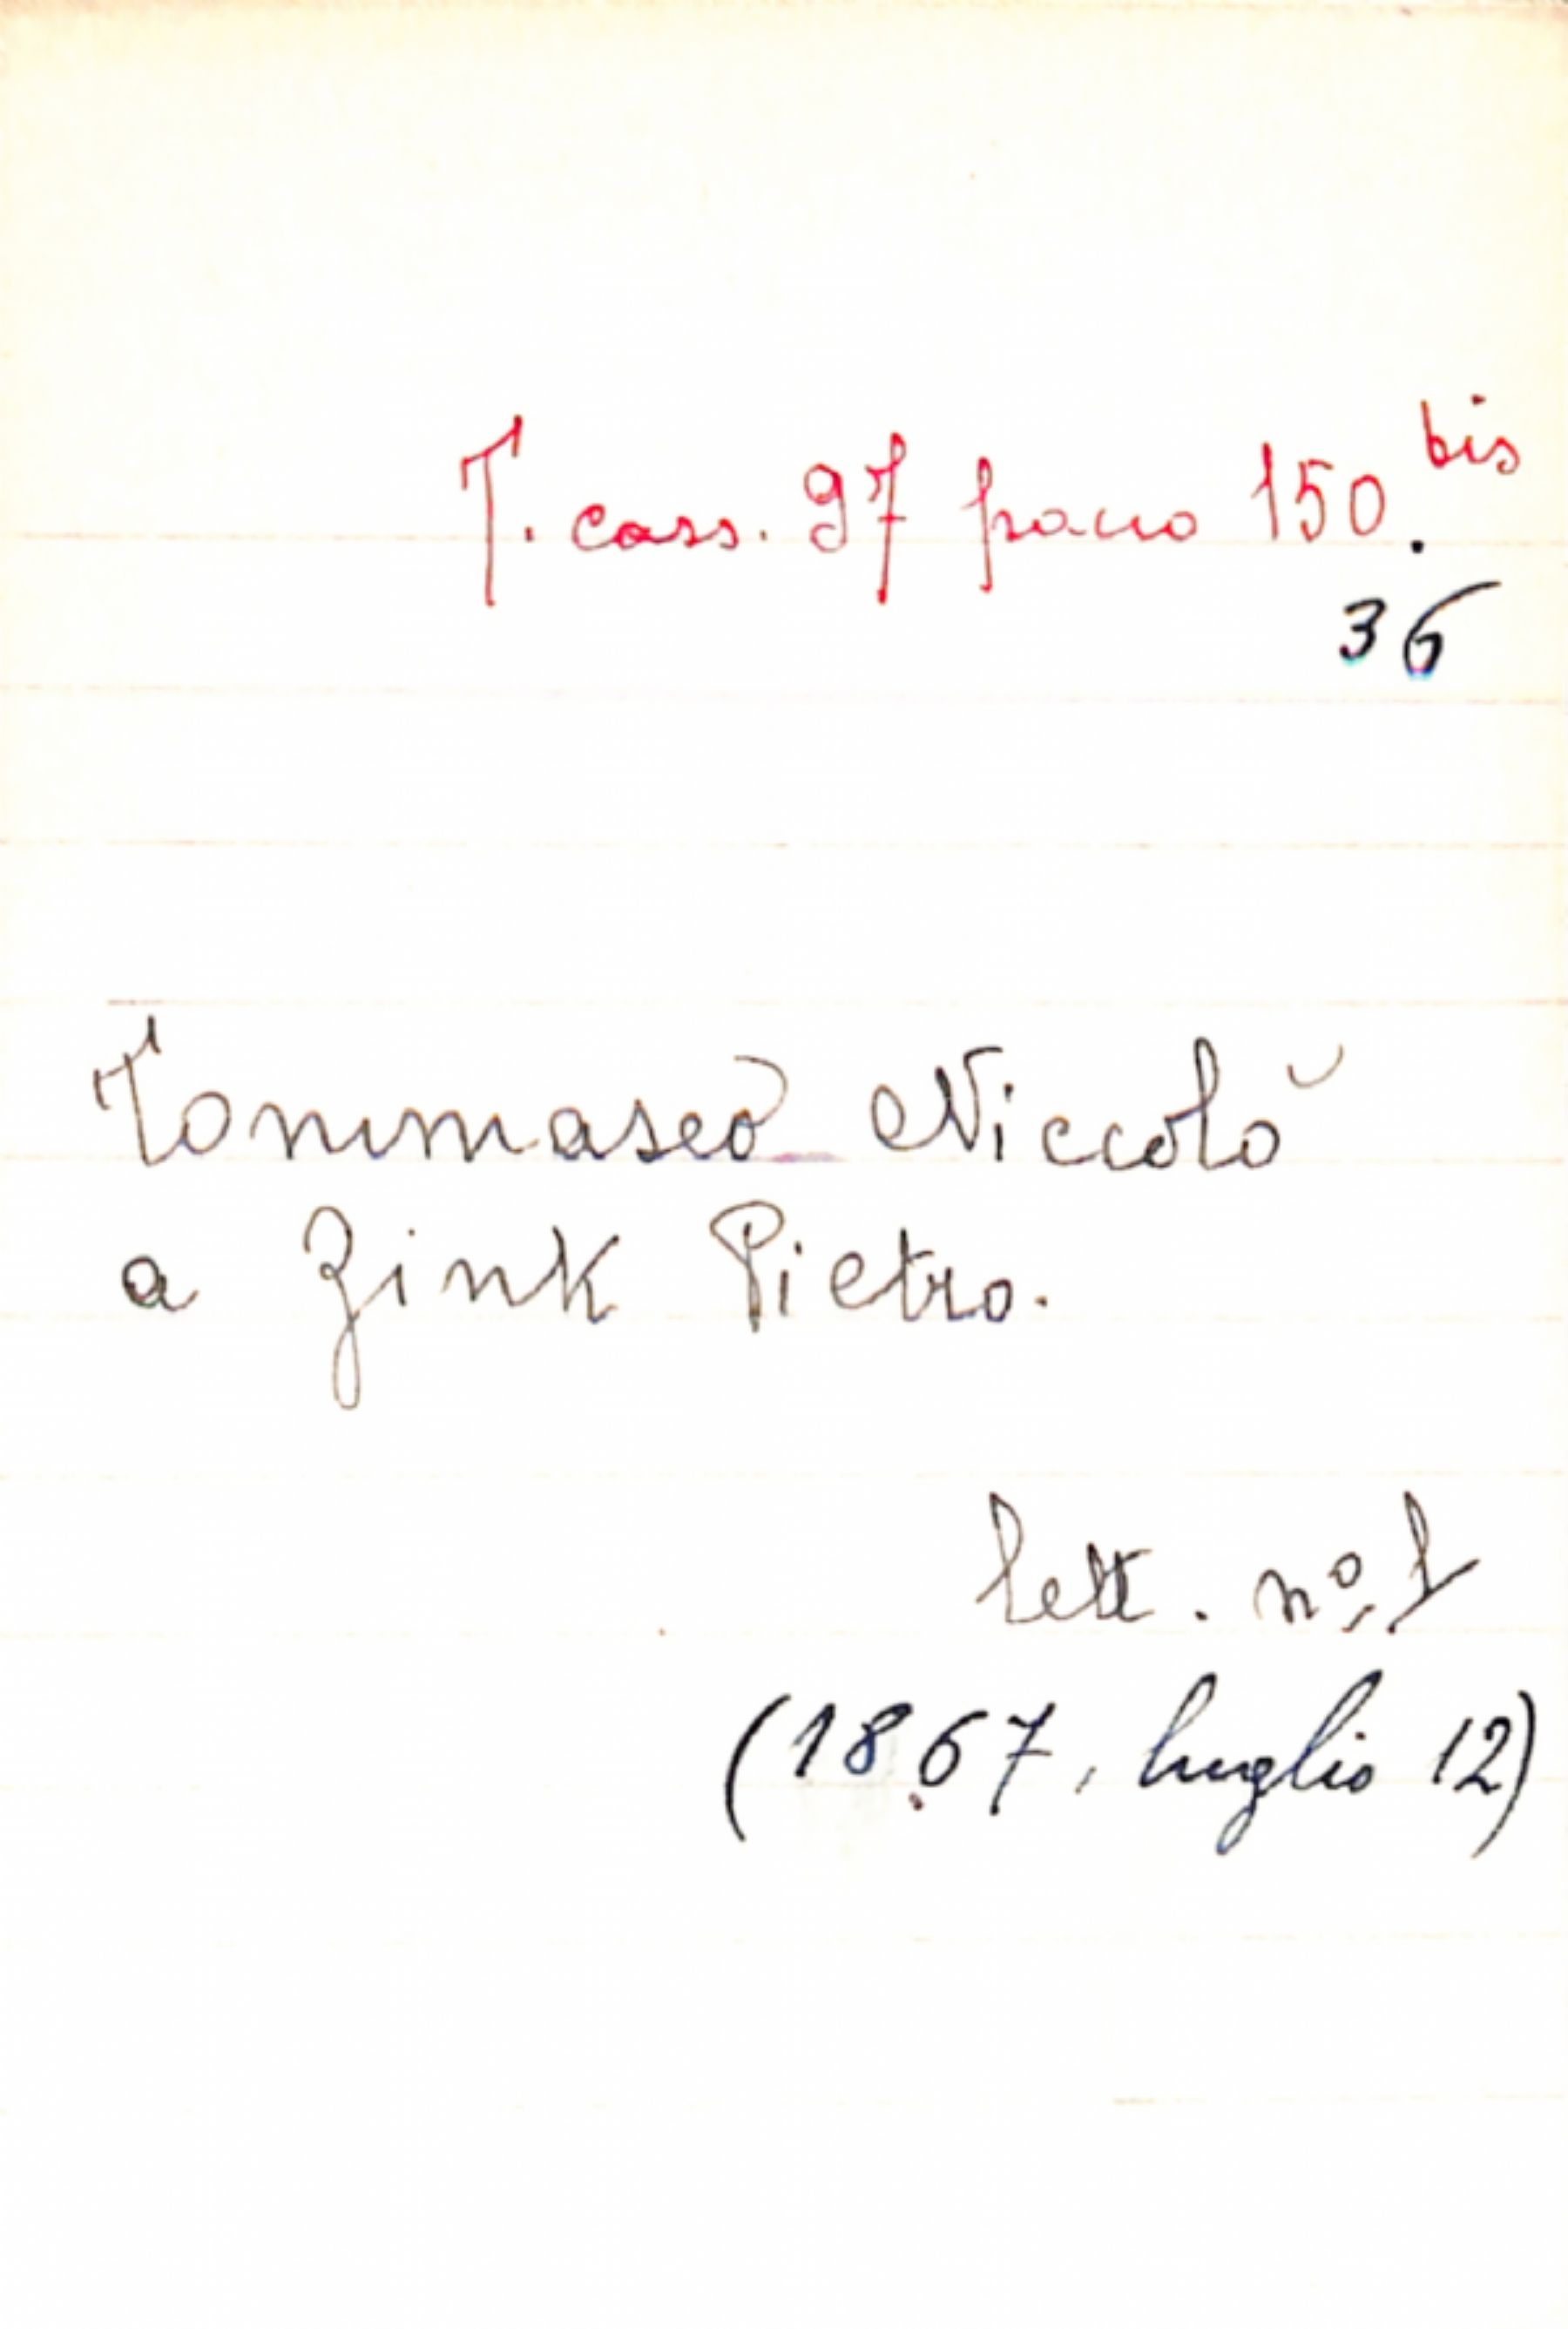 T. cass. 97 pacco 150.bis
36
Tommaseo Niccolò
a Zink Pietro.
lett. nº 1
(1867, luglio 12)